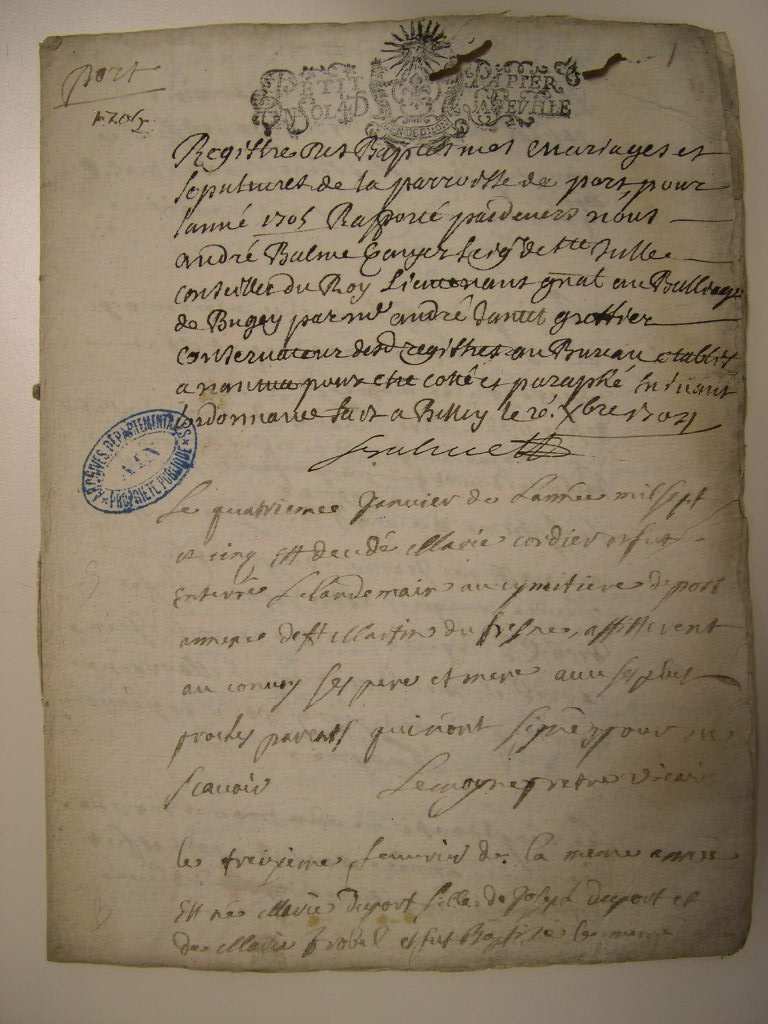 port
1705
1
PETIT PAPIER
VOL 4D LA FEVILLE
GEN DE BOURG
Registre des Baptesmes Mariages et
sepultures de la parroisse de port pour
lanné 1705 Rapporté pardevers nous
andré Balme Seigr de Ste Julle
conseiller du Roy Lieutenant gnal au Balliage
de Bugey par me andré Jantet greffier
conservateur desd registres au Bureau etablit
a nantua pour etre cotté et paraphé suivant
lordonnance fait a Belley le Xbre 1704
Balme
ARCHIVES DEPARTEMENTALES
AIN
PROPRIETE PUBLIQUE
Le quatrieme Janvier de Lannee mil sept
et cinq Est decedé Marie cordier et fut
Enterrée Le landemain au cymitiere de port
annexe de St Martin du fresne, assisterent
au convoy ses pere et mere avec ses plus
proches parents qui n'ont signéz pour ne
scavoir Lemoyne pretre vicaire
le treizieme fevrier de la meme année
Est née Marie Duport fille de Joseph duport et
de Marie frobel et fut Baptisée le meme